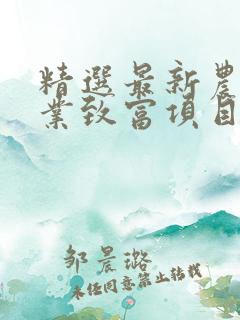 精選最新農
業致富項目
邹晨璐
未经同意禁止转载